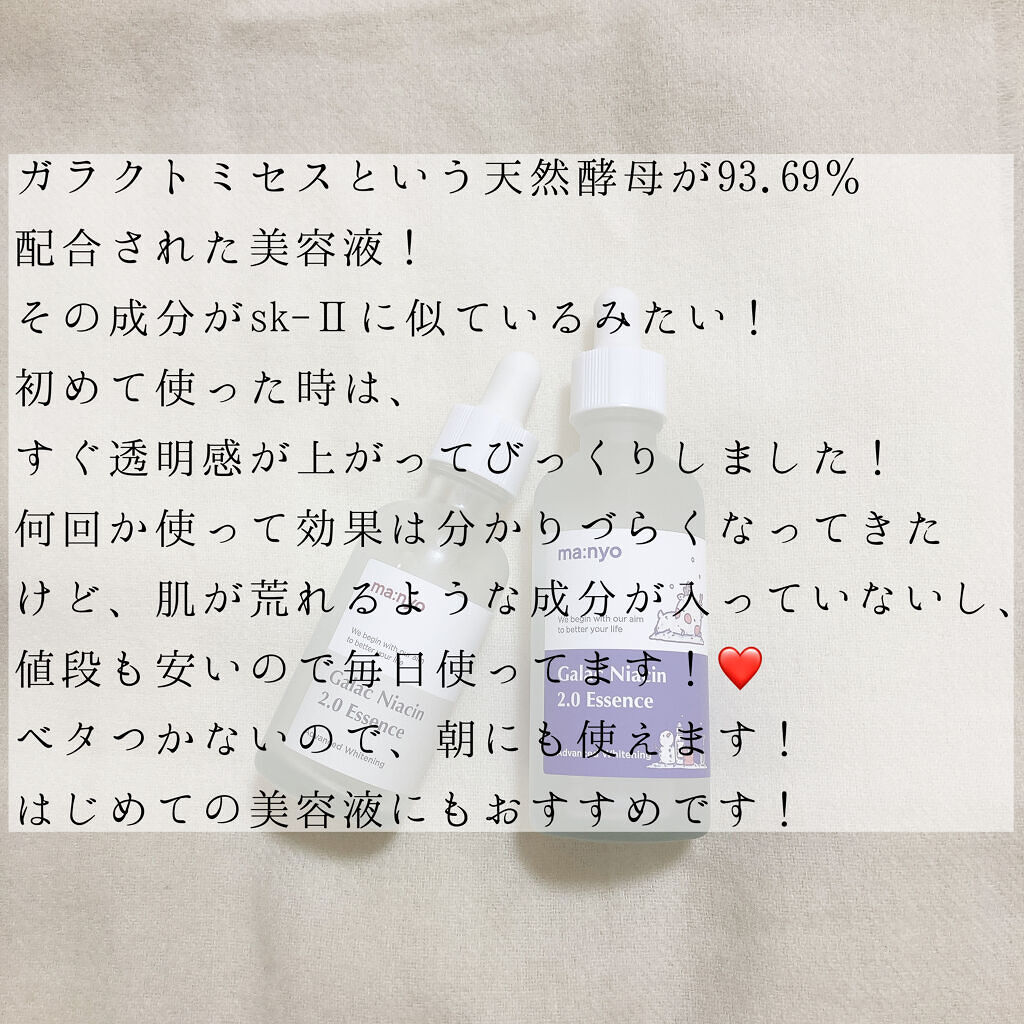 ガラクトミセスという天然酵母が93.69％
配合された美容液！
その成分がsk-Ⅱに似ているみたい！
初めて使った時は、
すぐ透明感が上がってびっくりしました！
何回か使って効果は分かりづらくなってきた
けど、肌が荒れるような成分が入っていないし、
値段も安いので毎日使ってます！❤️
ベタつかないので、朝にも使えます！
はじめての美容液にもおすすめです！
ma:nyo
We begin with our aim
to better your life
Galac Niacin
2.0 Essence
Advanced Whitening
ma:nyo
We begin with our aim
to better your life
Galac Niacin
2.0 Essence
Advanced Whitening